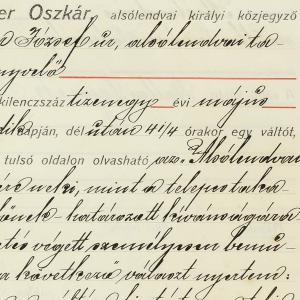 er Oszkár, alsólendvai királyi közjegyző
József úr, alsólendvai ta-
nyvelő
kilenczszáz tizenegy évi május
dik napján, dél után 4 1/4 órakor egy váltót,
túlsó oldalon olvasható az „Alsólendvai
nek, mint a telepes taka-
nek határozott kívánságára
végett személyesen bemu-
a következő választ nyertem: